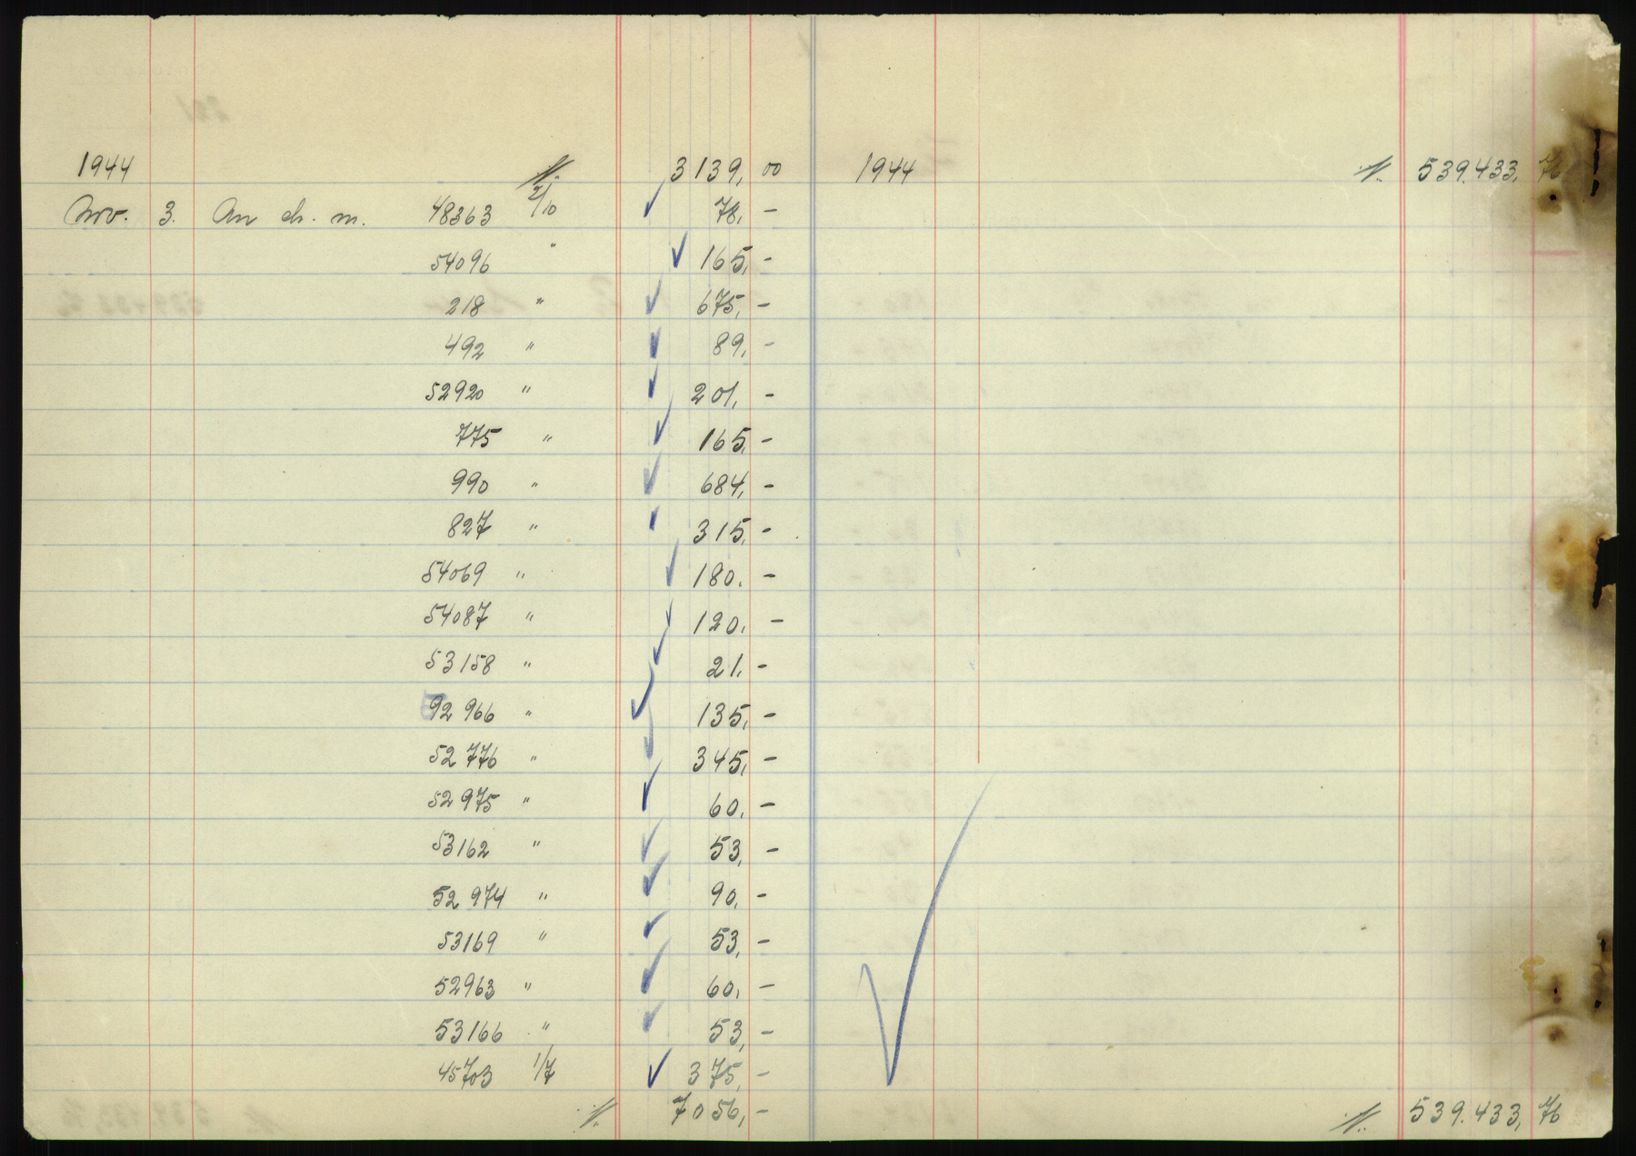 1944 3139,00
Nov. 3. An ch. m. 48363 2/10 78,-
54096 " 165,-
218 " 675,-
492 " 89,-
52920 " 201,-
775 " 165,-
990 " 684,-
827 " 315,-
54069 " 180,-
54087 " 120,-
53158 " 21,-
92966 " 135,-
52776 " 345,-
52975 " 60,-
53162 " 53,-
52974 " 90,-
53169 " 53,-
52963 " 60,-
53166 " 53,-
45703 1/7 375,-
7056,-
1944 539.433,76
539.433,76